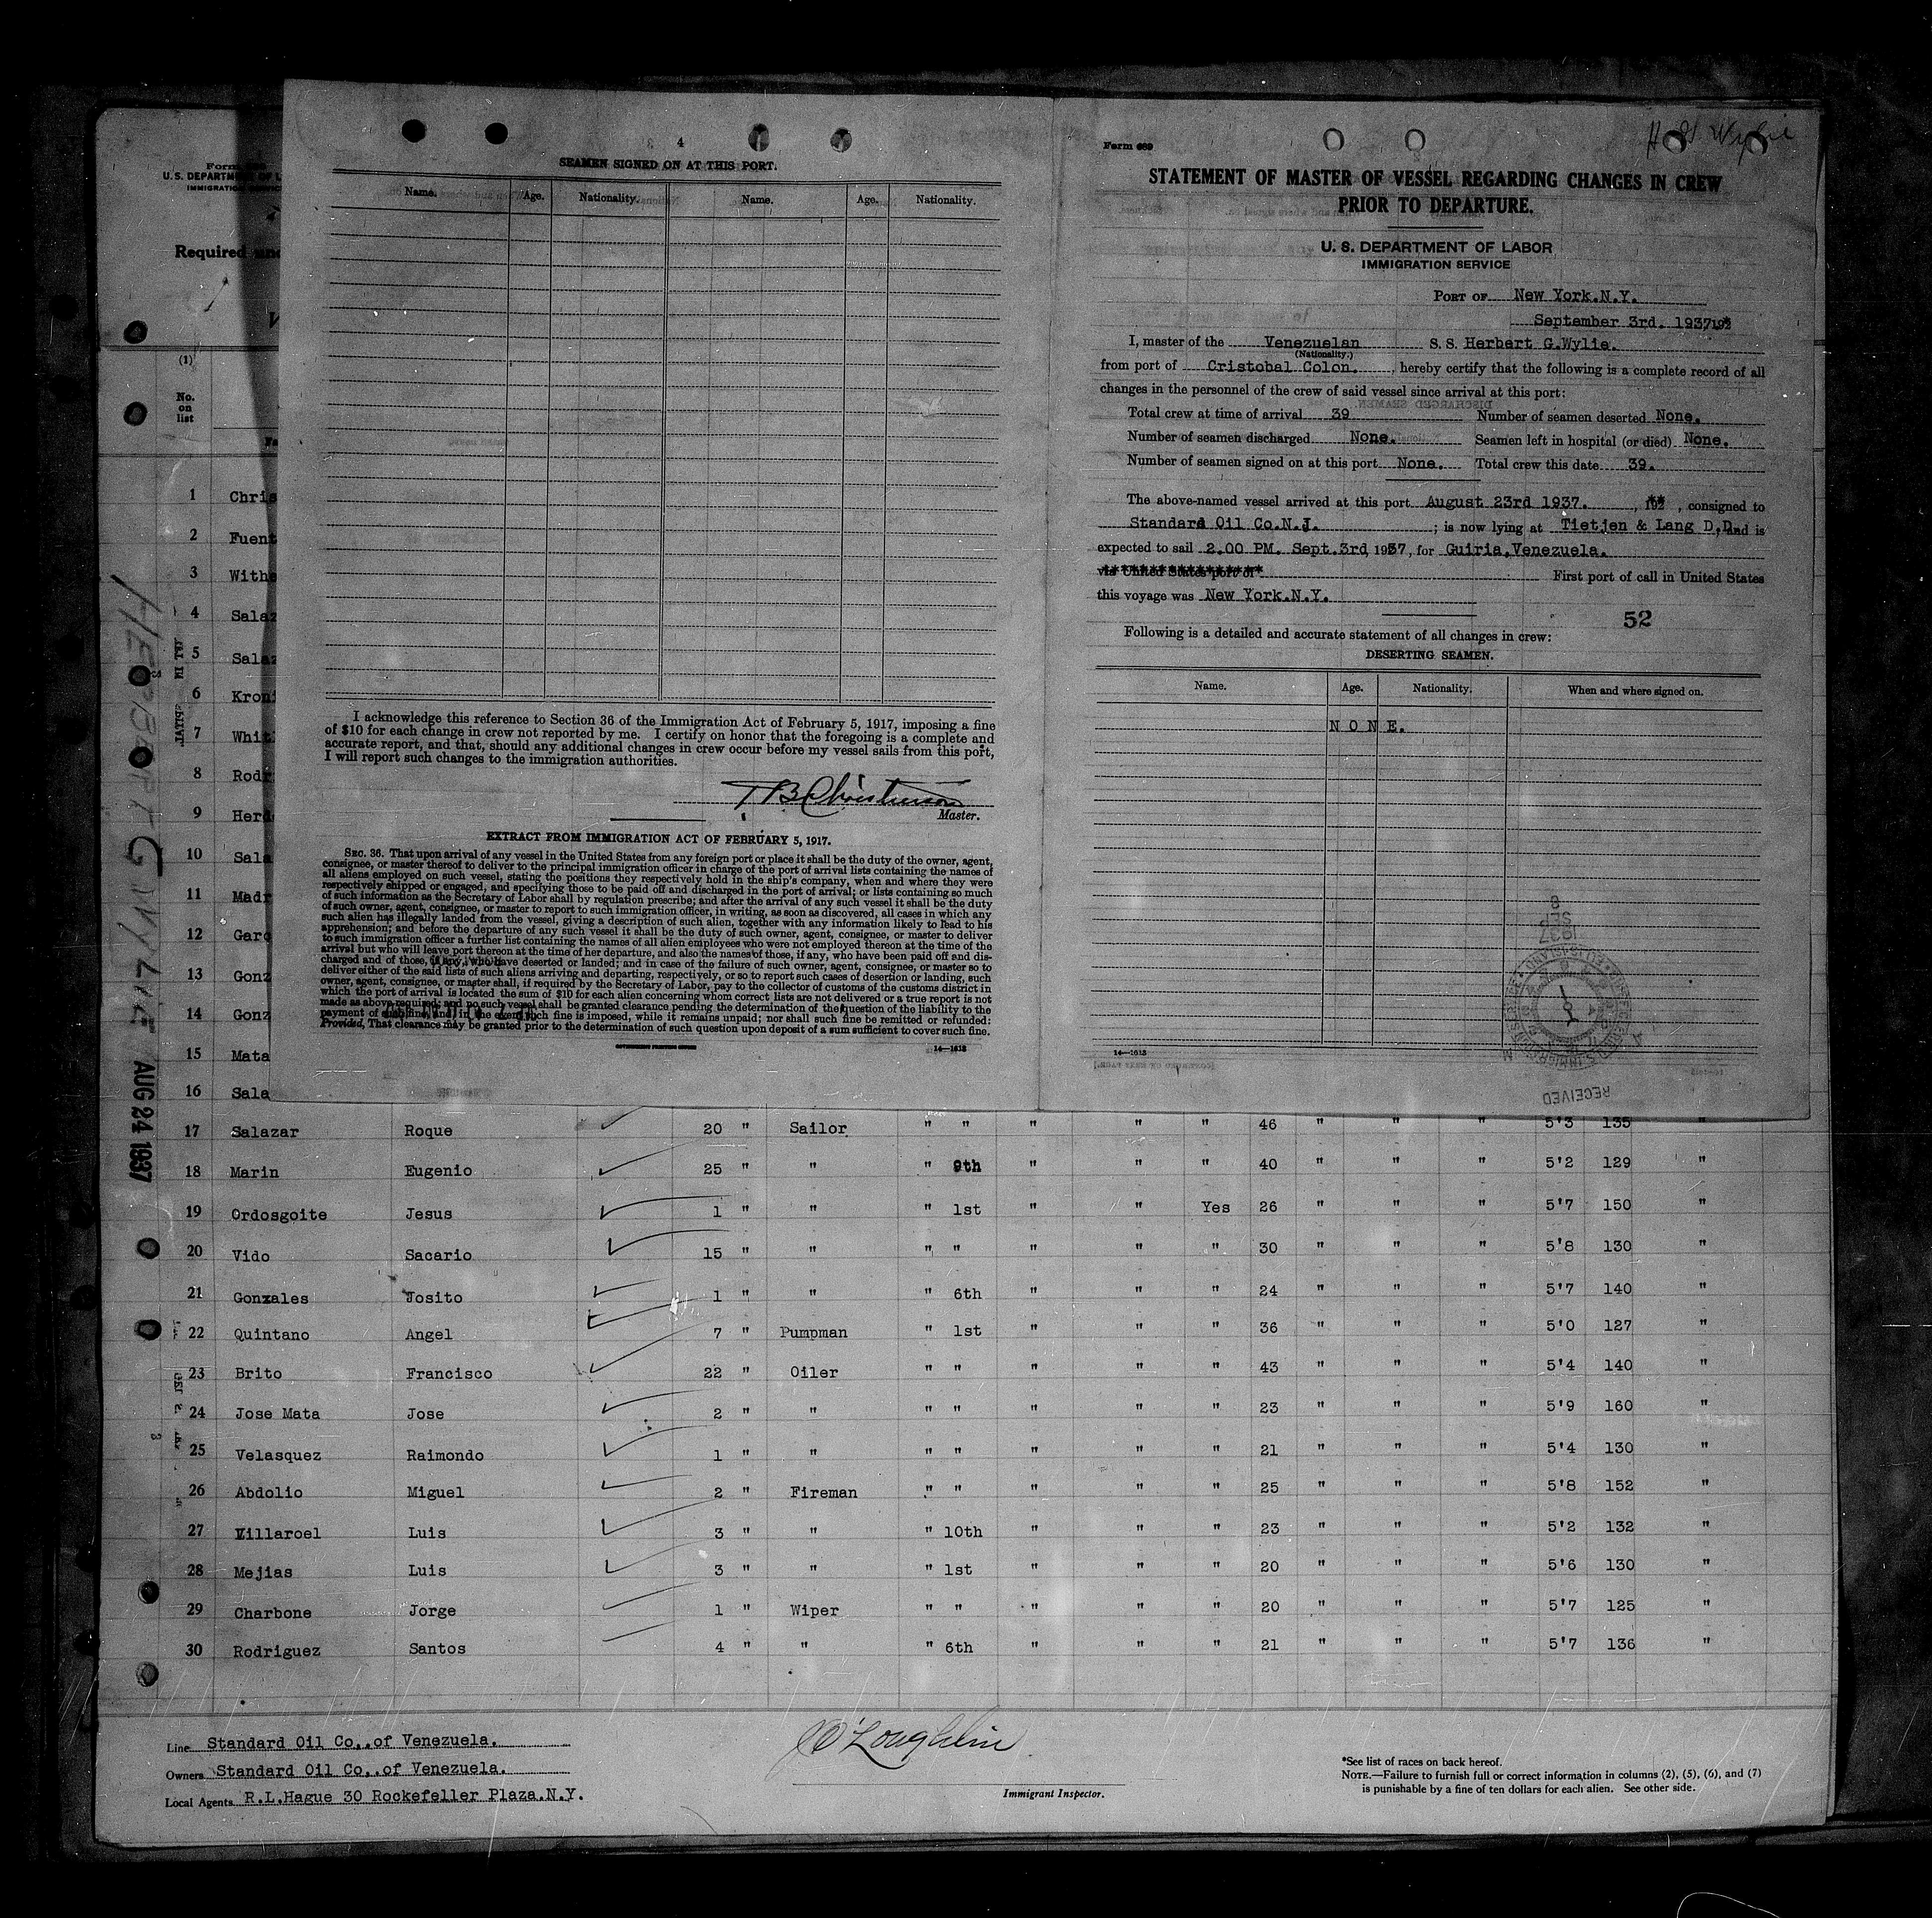 4
SEAMEN SIGNED ON AT THIS PORT.
Name. Age. Nationality. Name. Age. Nationality.
I acknowledge this reference to Section 36 of the Immigration Act of February 5, 1917, imposing a fine
of $10 for each change in crew not reported by me. I certify on honor that the foregoing is a complete and
accurate report, and that, should any additional changes in crew occur before my vessel sails from this port,
I will report such changes to the immigration authorities.
T B Christenson
Master.
EXTRACT FROM IMMIGRATION ACT OF FEBRUARY 5, 1917.
SEC. 36. That upon arrival of any vessel in the United States from any foreign port or place it shall be the duty of the owner, agent,
consignee, or master thereof to deliver to the principal immigration officer in charge of the port of arrival lists containing the names of
all aliens employed on such vessel, stating the positions they respectively hold in the ship's company, when and where they were
respectively shipped or engaged, and specifying those to be paid off and discharged in the port of arrival; or lists containing so much
of such information as the Secretary of Labor shall by regulation prescribe; and after the arrival of any such vessel it shall be the duty
of such owner, agent, consignee, or master to report to such immigration officer, in writing, as soon as discovered, all cases in which any
such alien has illegally landed from the vessel, giving a description of such alien, together with any information likely to lead to his
apprehension; and before the departure of any such vessel it shall be the duty of such owner, agent, consignee, or master to deliver
to such immigration officer a further list containing the names of all alien employees who were not employed thereon at the time of the
arrival but who will leave port thereon at the time of her departure, and also the names of those, if any, who have been paid off and dis-
charged and of those, if any, who have deserted or landed; and in case of the failure of such owner, agent, consignee, or master so to
deliver either of the said lists of such aliens arriving and departing, respectively, or so to report such cases of desertion or landing, such
owner, agent, consignee, or master shall, if required by the Secretary of Labor, pay to the collector of customs of the customs district in
which the port of arrival is located the sum of $10 for each alien concerning whom correct lists are not delivered or a true report is not
made as above required; and no such vessel shall be granted clearance pending the determination of the question of the liability to the
payment of such fine, and in the event such fine is imposed, while it remains unpaid; nor shall such fine be remitted or refunded:
Provided, That clearance may be granted prior to the determination of such question upon deposit of a sum sufficient to cover such fine.
GOVERNMENT PRINTING OFFICE 14—1613
H G Wylie
Form 689
STATEMENT OF MASTER OF VESSEL REGARDING CHANGES IN CREW
PRIOR TO DEPARTURE.
U. S. DEPARTMENT OF LABOR
IMMIGRATION SERVICE
PORT OF New York.N.Y.
September 3rd. 1937 192
I, master of the Venezuelan S. S. Herbert G.Wylie.
(Nationality.)
from port of Cristobal Colon. , hereby certify that the following is a complete record of all
changes in the personnel of the crew of said vessel since arrival at this port:
Total crew at time of arrival 39 Number of seamen deserted None.
Number of seamen discharged None. Seamen left in hospital (or died) None.
Number of seamen signed on at this port None. Total crew this date 39.
The above-named vessel arrived at this port August 23rd 1937. , 192 , consigned to
Standard Oil Co.N.J. ; is now lying at Tietjen & Lang D.D. and is
expected to sail 2.00 PM. Sept.3rd, 1937, for Guiria,Venezuela.
via United States port of First port of call in United States
this voyage was New York.N.Y.
52
Following is a detailed and accurate statement of all changes in crew:
DESERTING SEAMEN.
Name. Age. Nationality. When and where signed on.
N O N E.
14—1613
RECEIVED
Form
U. S. DEPARTMENT OF L
IMMIGRATION SERVICE
Required und
(1)
No.
on
list
HERBERT G WYLIE
AUG 24 1937
1 Chris
2 Fuent
3 Withe
4 Salaz
5 Salaz
6 Kroni
7 Whit
8 Rodr
9 Herd
10 Sala
11 Madr
12 Garc
13 Gonz
14 Gonz
15 Mata
16 Sala
17 Salazar Roque 20 " Sailor " " " " " 46 " " " 5'3 135 "
18 Marin Eugenio 25 " " " 9th " " " 40 " " " 5'2 129 "
19 Ordosgoite Jesus 1 " " " 1st " " Yes 26 " " " 5'7 150 "
20 Vido Sacario 15 " " " " " " " 30 " " " 5'8 130 "
21 Gonzales Josito 1 " " " 6th " " " 24 " " " 5'7 140 "
22 Quintano Angel 7 " Pumpman " 1st " " " 36 " " " 5'0 127 "
23 Brito Francisco 22 " Oiler " " " " " 43 " " " 5'4 140 "
24 Jose Mata Jose 2 " " " " " " " 23 " " " 5'9 160 "
25 Velasquez Raimondo 1 " " " " " " " 21 " " " 5'4 130 "
26 Abdolio Miguel 2 " Fireman " " " " " 25 " " " 5'8 152 "
27 Villaroel Luis 3 " " " 10th " " " 23 " " " 5'2 132 "
28 Mejias Luis 3 " " " 1st " " " 20 " " " 5'6 130 "
29 Charbone Jorge 1 " Wiper " " " " " 20 " " " 5'7 125 "
30 Rodriguez Santos 4 " " " 6th " " " 21 " " " 5'7 136 "
Line Standard Oil Co,.of Venezuela.
Owners Standard Oil Co,.of Venezuela.
Local Agents R.L.Hague 30 Rockefeller Plaza.N.Y.
O'Loughlin
Immigrant Inspector.
*See list of races on back hereof.
NOTE.—Failure to furnish full or correct information in columns (2), (5), (6), and (7)
is punishable by a fine of ten dollars for each alien. See other side.